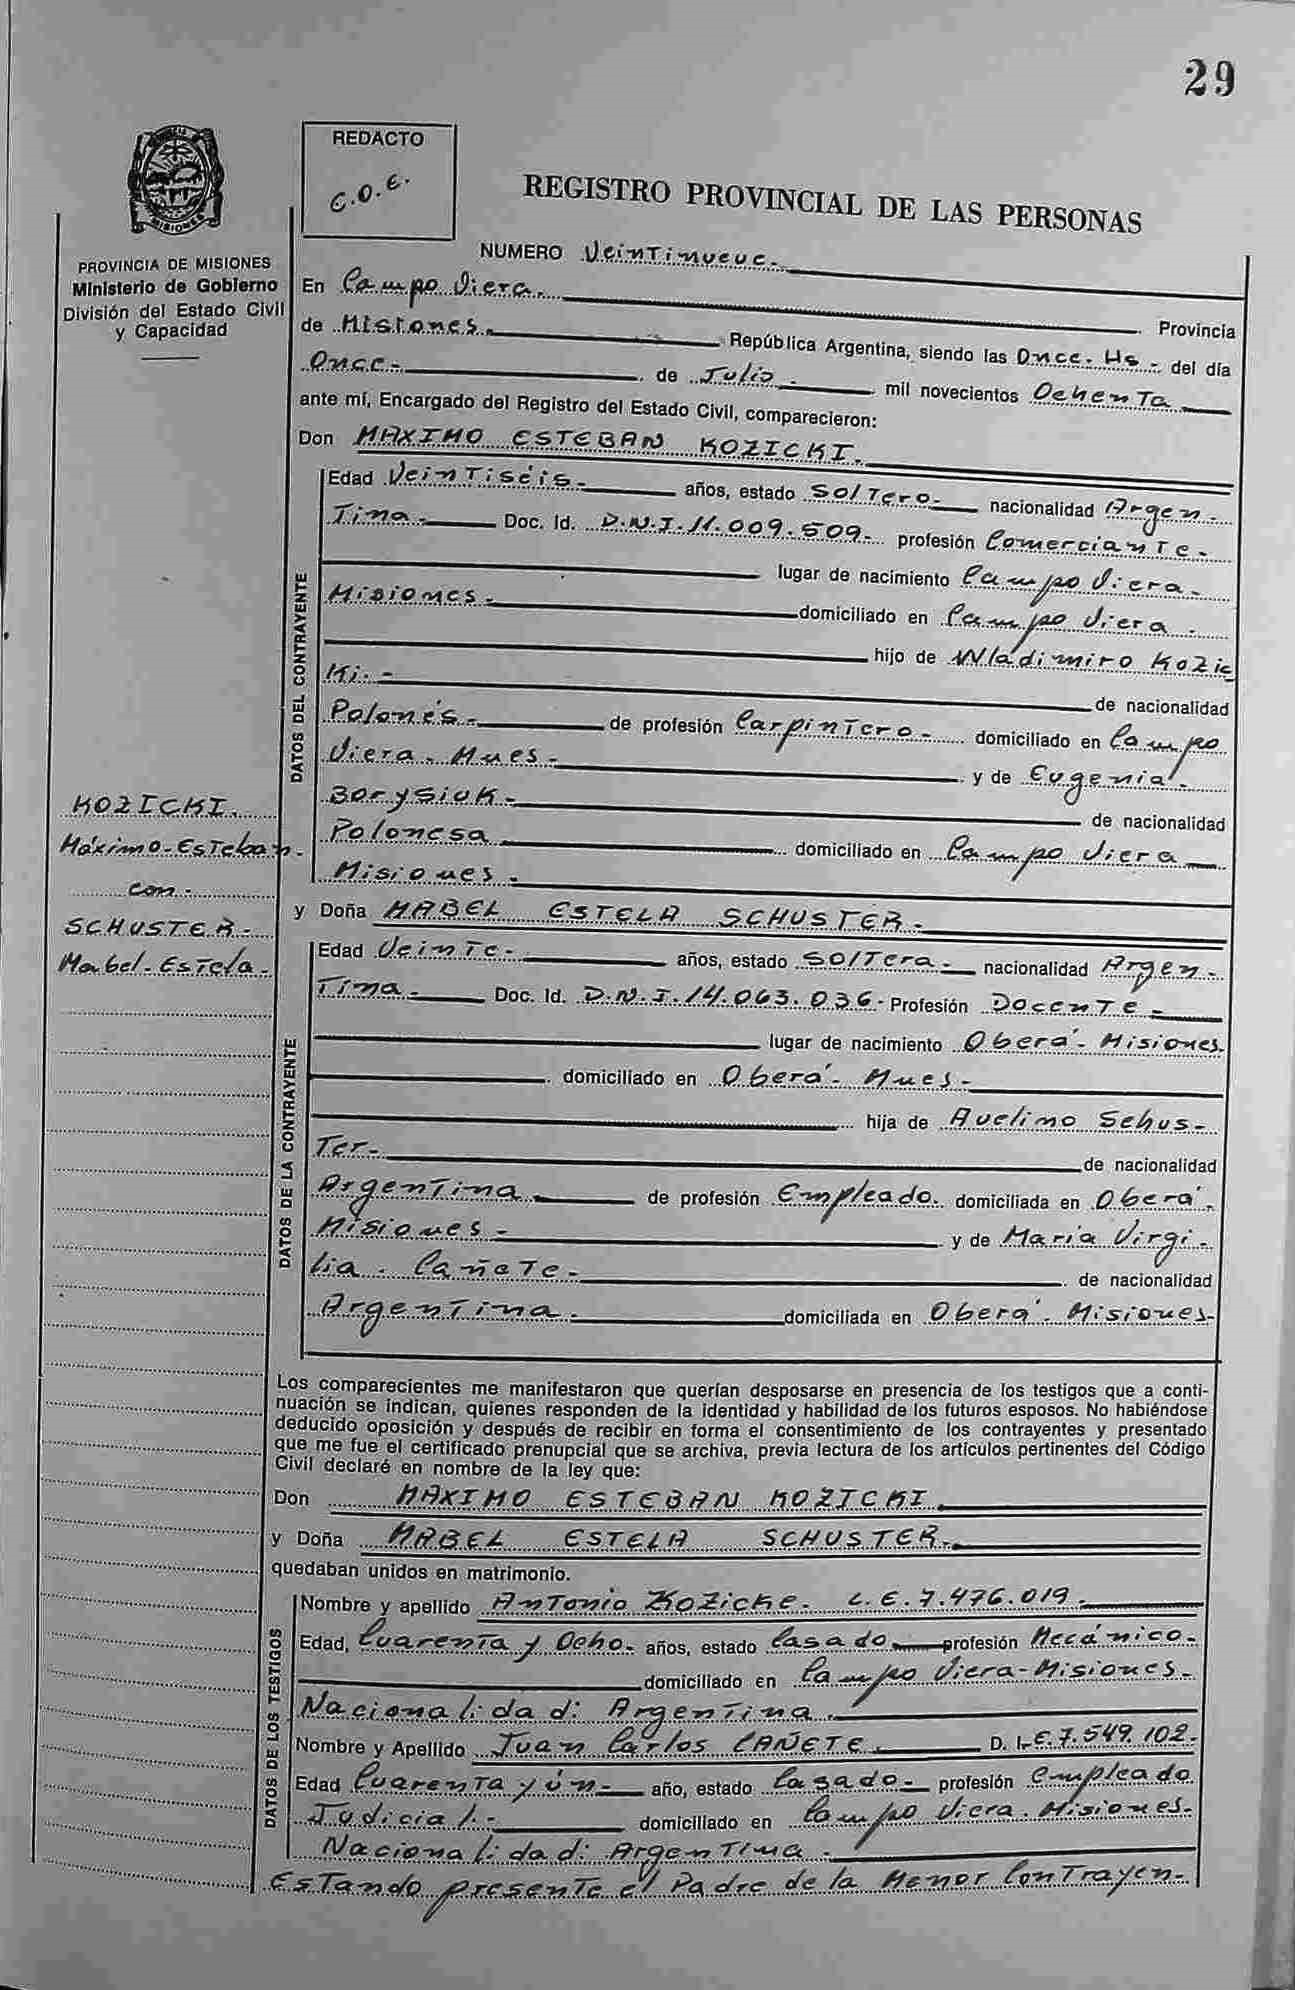 29
REDACTO
C.O.E.
REGISTRO PROVINCIAL DE LAS PERSONAS
PROVINCIA DE MISIONES
Ministerio de Gobierno
División del Estado Civil
y Capacidad
NUMERO Veintinueve.-
En Campo Viera.- Provincia
de Misiones.- República Argentina, siendo las Once. Hs - del día
Once.- de Julio.- mil novecientos Ochenta
ante mí, Encargado del Registro del Estado Civil, comparecieron:
Don MAXIMO ESTEBAN KOZICKI.-
DATOS DEL CONTRAYENTE
Edad Veintiséis.- años, estado Soltero.- nacionalidad Argen-
tina.- Doc. Id. D.N.I. 11.009.509.- profesión Comerciante.-
lugar de nacimiento Campo Viera.-
Misiones.- domiciliado en Campo Viera.-
hijo de Wladimiro Kozic
Ki.- de nacionalidad
Polonés.- de profesión Carpintero.- domiciliado en Campo
Viera. Mnes.- y de Eugenia.-
Borysiuk.- de nacionalidad
Polonesa domiciliado en Campo Viera
Misiones.-
KOZICKI.
Máximo-Esteban-
con-
SCHUSTER-
Mabel-Estela-
y Doña MABEL ESTELA SCHUSTER.-
DATOS DE LA CONTRAYENTE
Edad Veinte.- años, estado Soltera.- nacionalidad Argen-
tina.- Doc. Id. D.N.I. 14.063.036- Profesión Docente-
lugar de nacimiento Oberá- Misiones.
domiciliado en Oberá- Mnes-
hija de Avelino Schus-
ter- de nacionalidad
Argentina.- de profesión Empleado. domiciliada en Oberá-
Misiones- y de María Virgi-
lia. Cañete- de nacionalidad
Argentina.- domiciliada en Oberá- Misiones-
Los comparecientes me manifestaron que querían desposarse en presencia de los testigos que a conti-
nuación se indican, quienes responden de la identidad y habilidad de los futuros esposos. No habiéndose
deducido oposición y después de recibir en forma el consentimiento de los contrayentes y presentado
que me fue el certificado prenupcial que se archiva, previa lectura de los artículos pertinentes del Código
Civil declaré en nombre de la ley que:
Don MAXIMO ESTEBAN KOZICKI.
y Doña MABEL ESTELA SCHUSTER.-
quedaban unidos en matrimonio.
DATOS DE LOS TESTIGOS
Nombre y apellido Antonio Kozicke. L.E. 7.476.019.-
Edad, Cuarenta y Ocho- años, estado Casado profesión Mecánico-
domiciliado en Campo Viera-Misiones-
Nacionalidad: Argentina.
Nombre y Apellido Juan Carlos CAÑETE. D. I. L.E. 7.549.102-
Edad Cuarenta y ún- año, estado Casado- profesión Empleado
Judicial.- domiciliado en Campo Viera. Misiones-
Nacionalidad: Argentina.-
Estando presente el Padre de la Menor Contrayen-